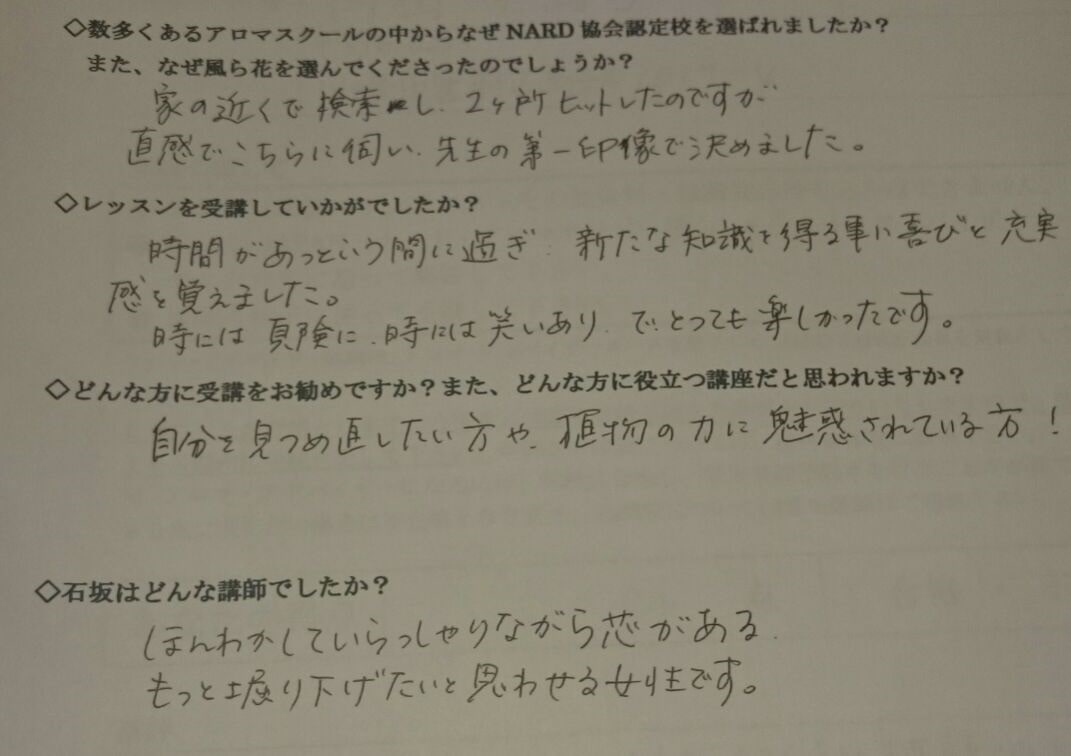 ◇数多くあるアロマスクールの中からなぜNARD協会認定校を選ばれましたか？
また、なぜ風ら花を選んでくださったのでしょうか？
家の近くで検索し、2ヶ所ヒットしたのですが
直感でこちらに伺い、先生の第一印像で決めました。
◇レッスンを受講していかがでしたか？
時間があっという間に過ぎ、新たな知識を得る事に喜びと充実
感を覚えました。
時には真険に、時には笑いあり、で、とっても楽しかったです。
◇どんな方に受講をお勧めですか？また、どんな方に役立つ講座だと思われますか？
自分を見つめ直したい方や、植物の力に魅惑されている方！
◇石坂はどんな講師でしたか？
ほんわかしていらっしゃりながら芯がある、
もっと堀り下げたいと思わせる女性です。